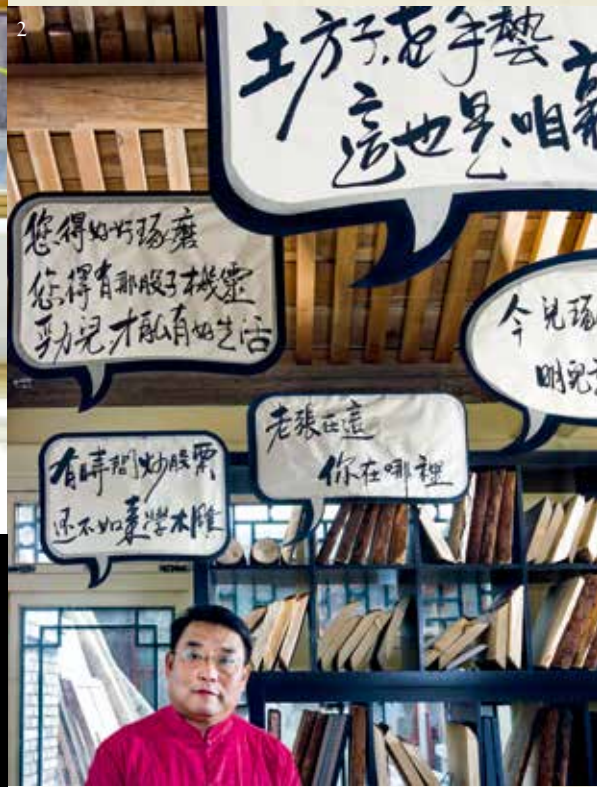 2
土方子,老手藝
這也是,咱
您得好好琢磨
您得有那股子機靈
勁兒才能有好生活
今兒琢
明兒
老張在這
你在哪裡
有時間炒股票
還不如來學木雕